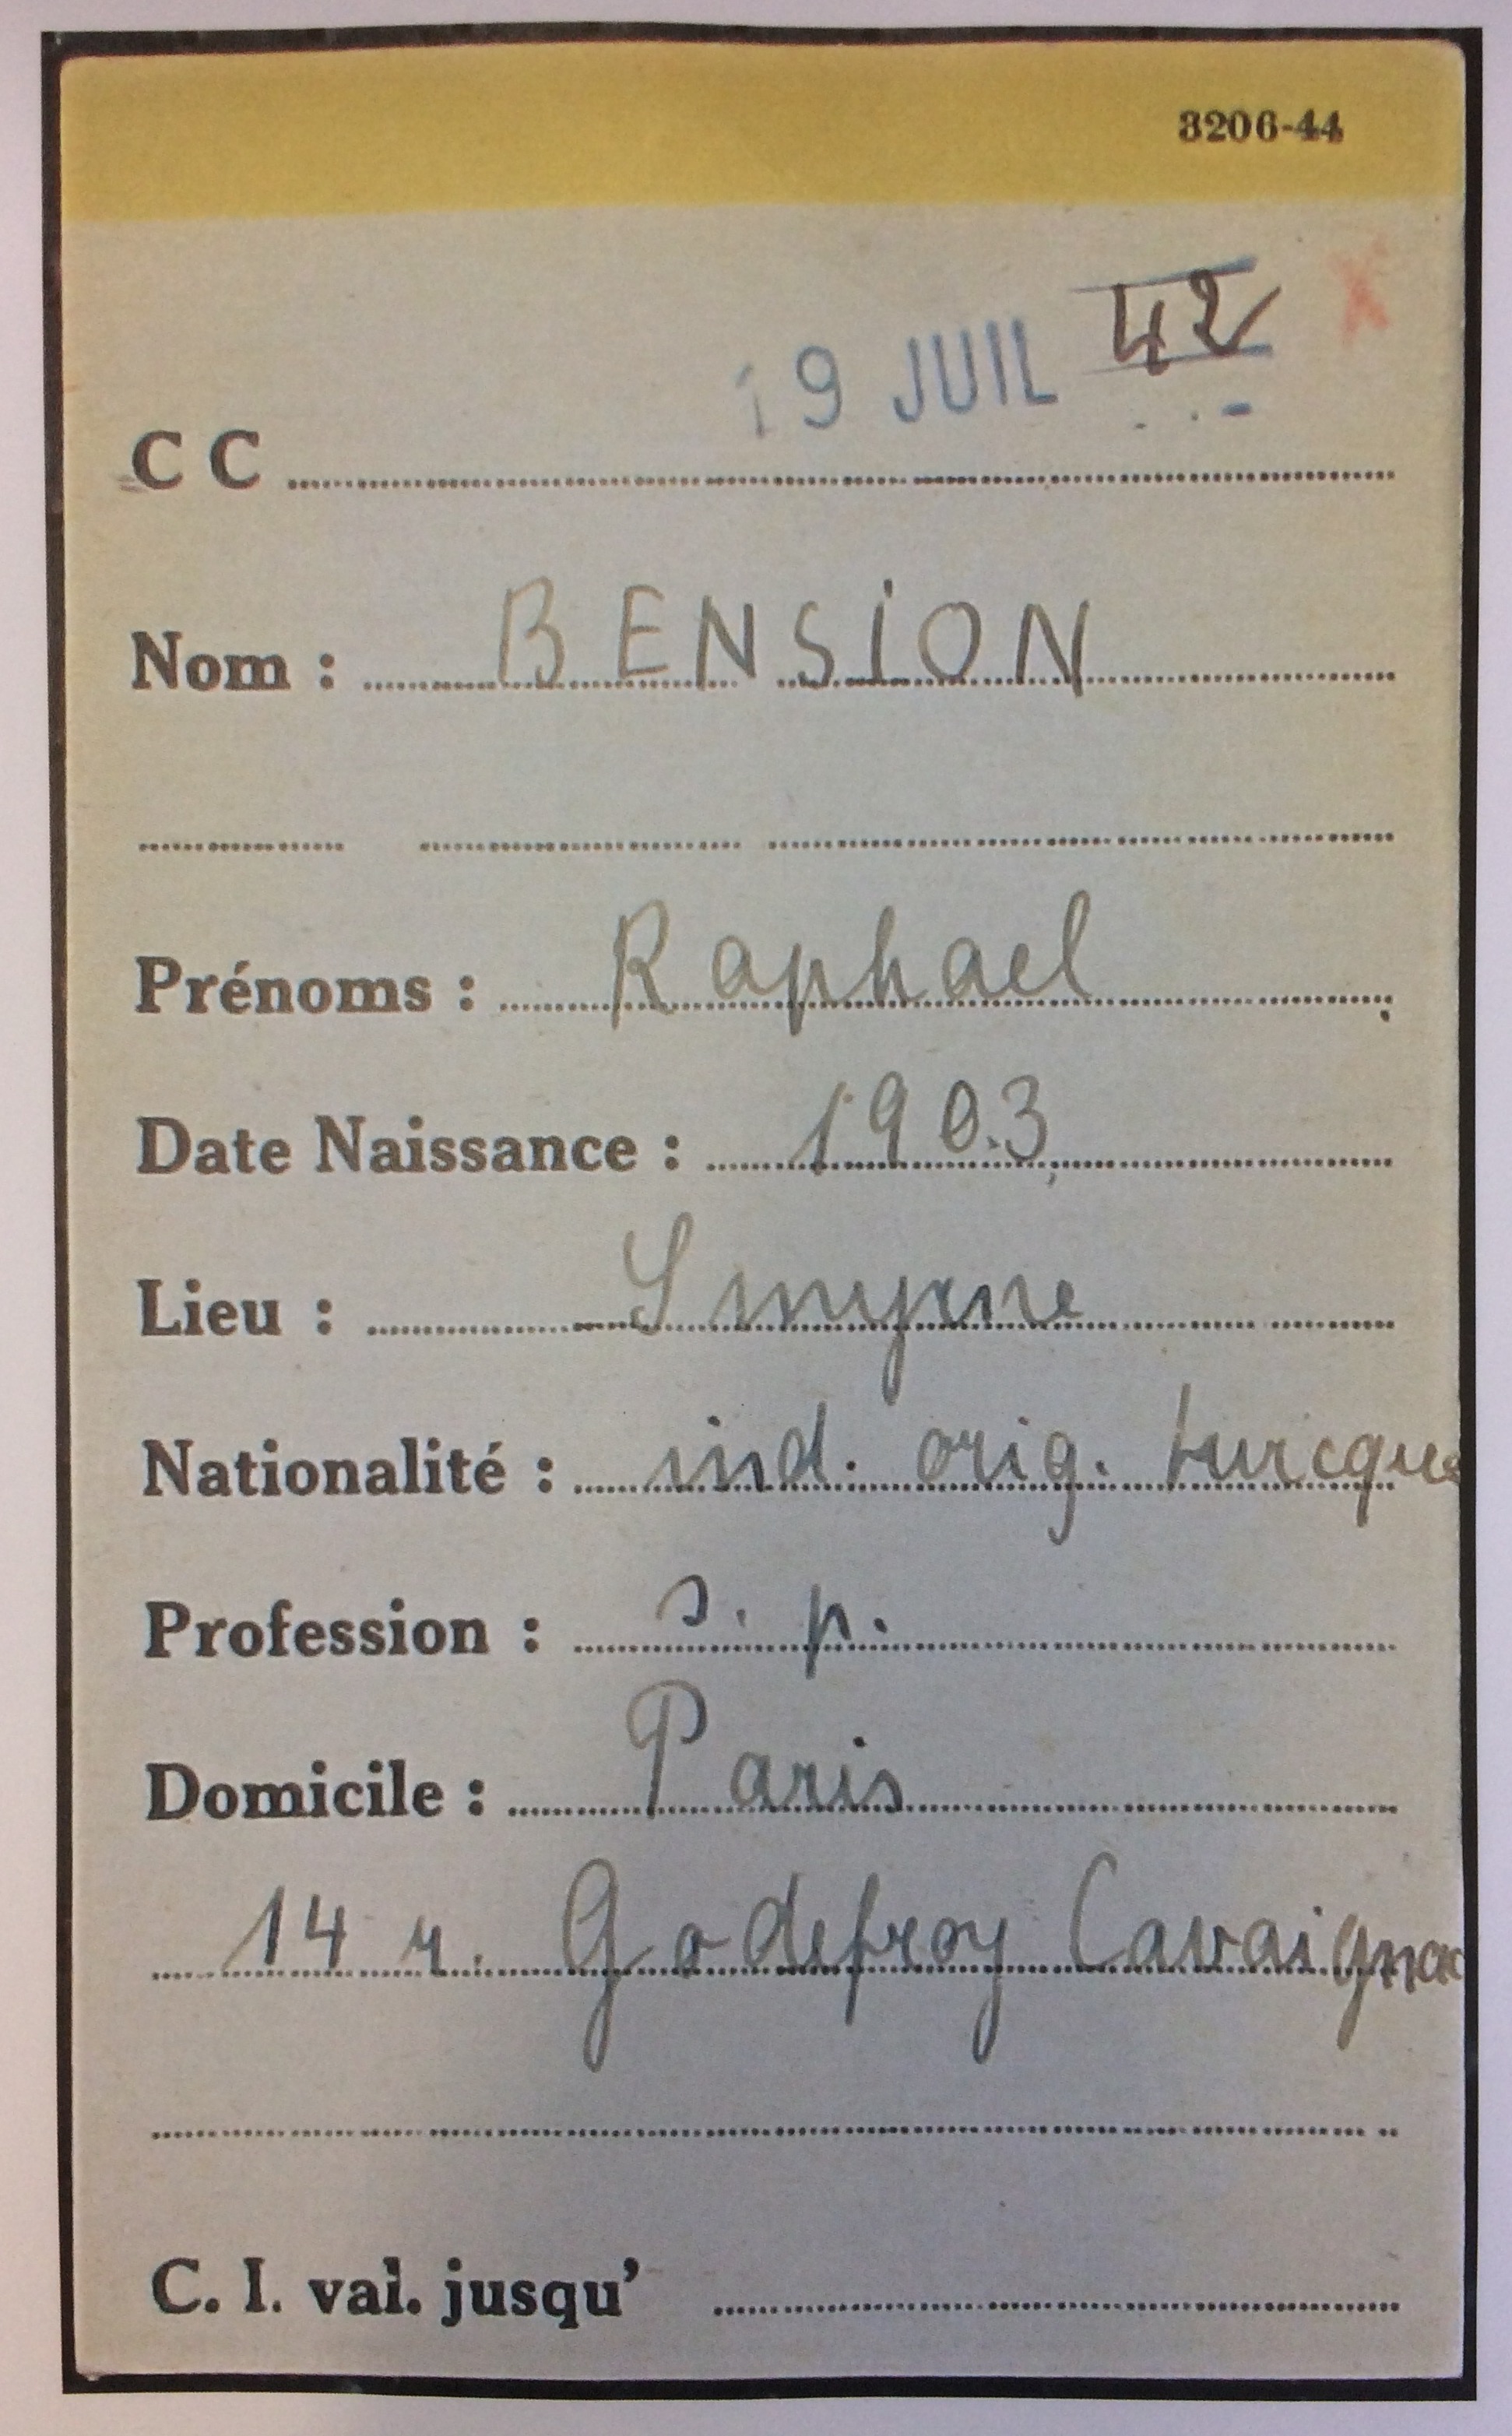 3206-44
19 JUIL 42 X
C C
Nom : BENSION
Prénoms : Raphael
Date Naissance : 1903
Lieu : Smyrne
Nationalité : ind. orig. turcque
Profession : s. p.
Domicile : Paris
14 r. Godefroy Cavaignac
C. I. val. jusqu'